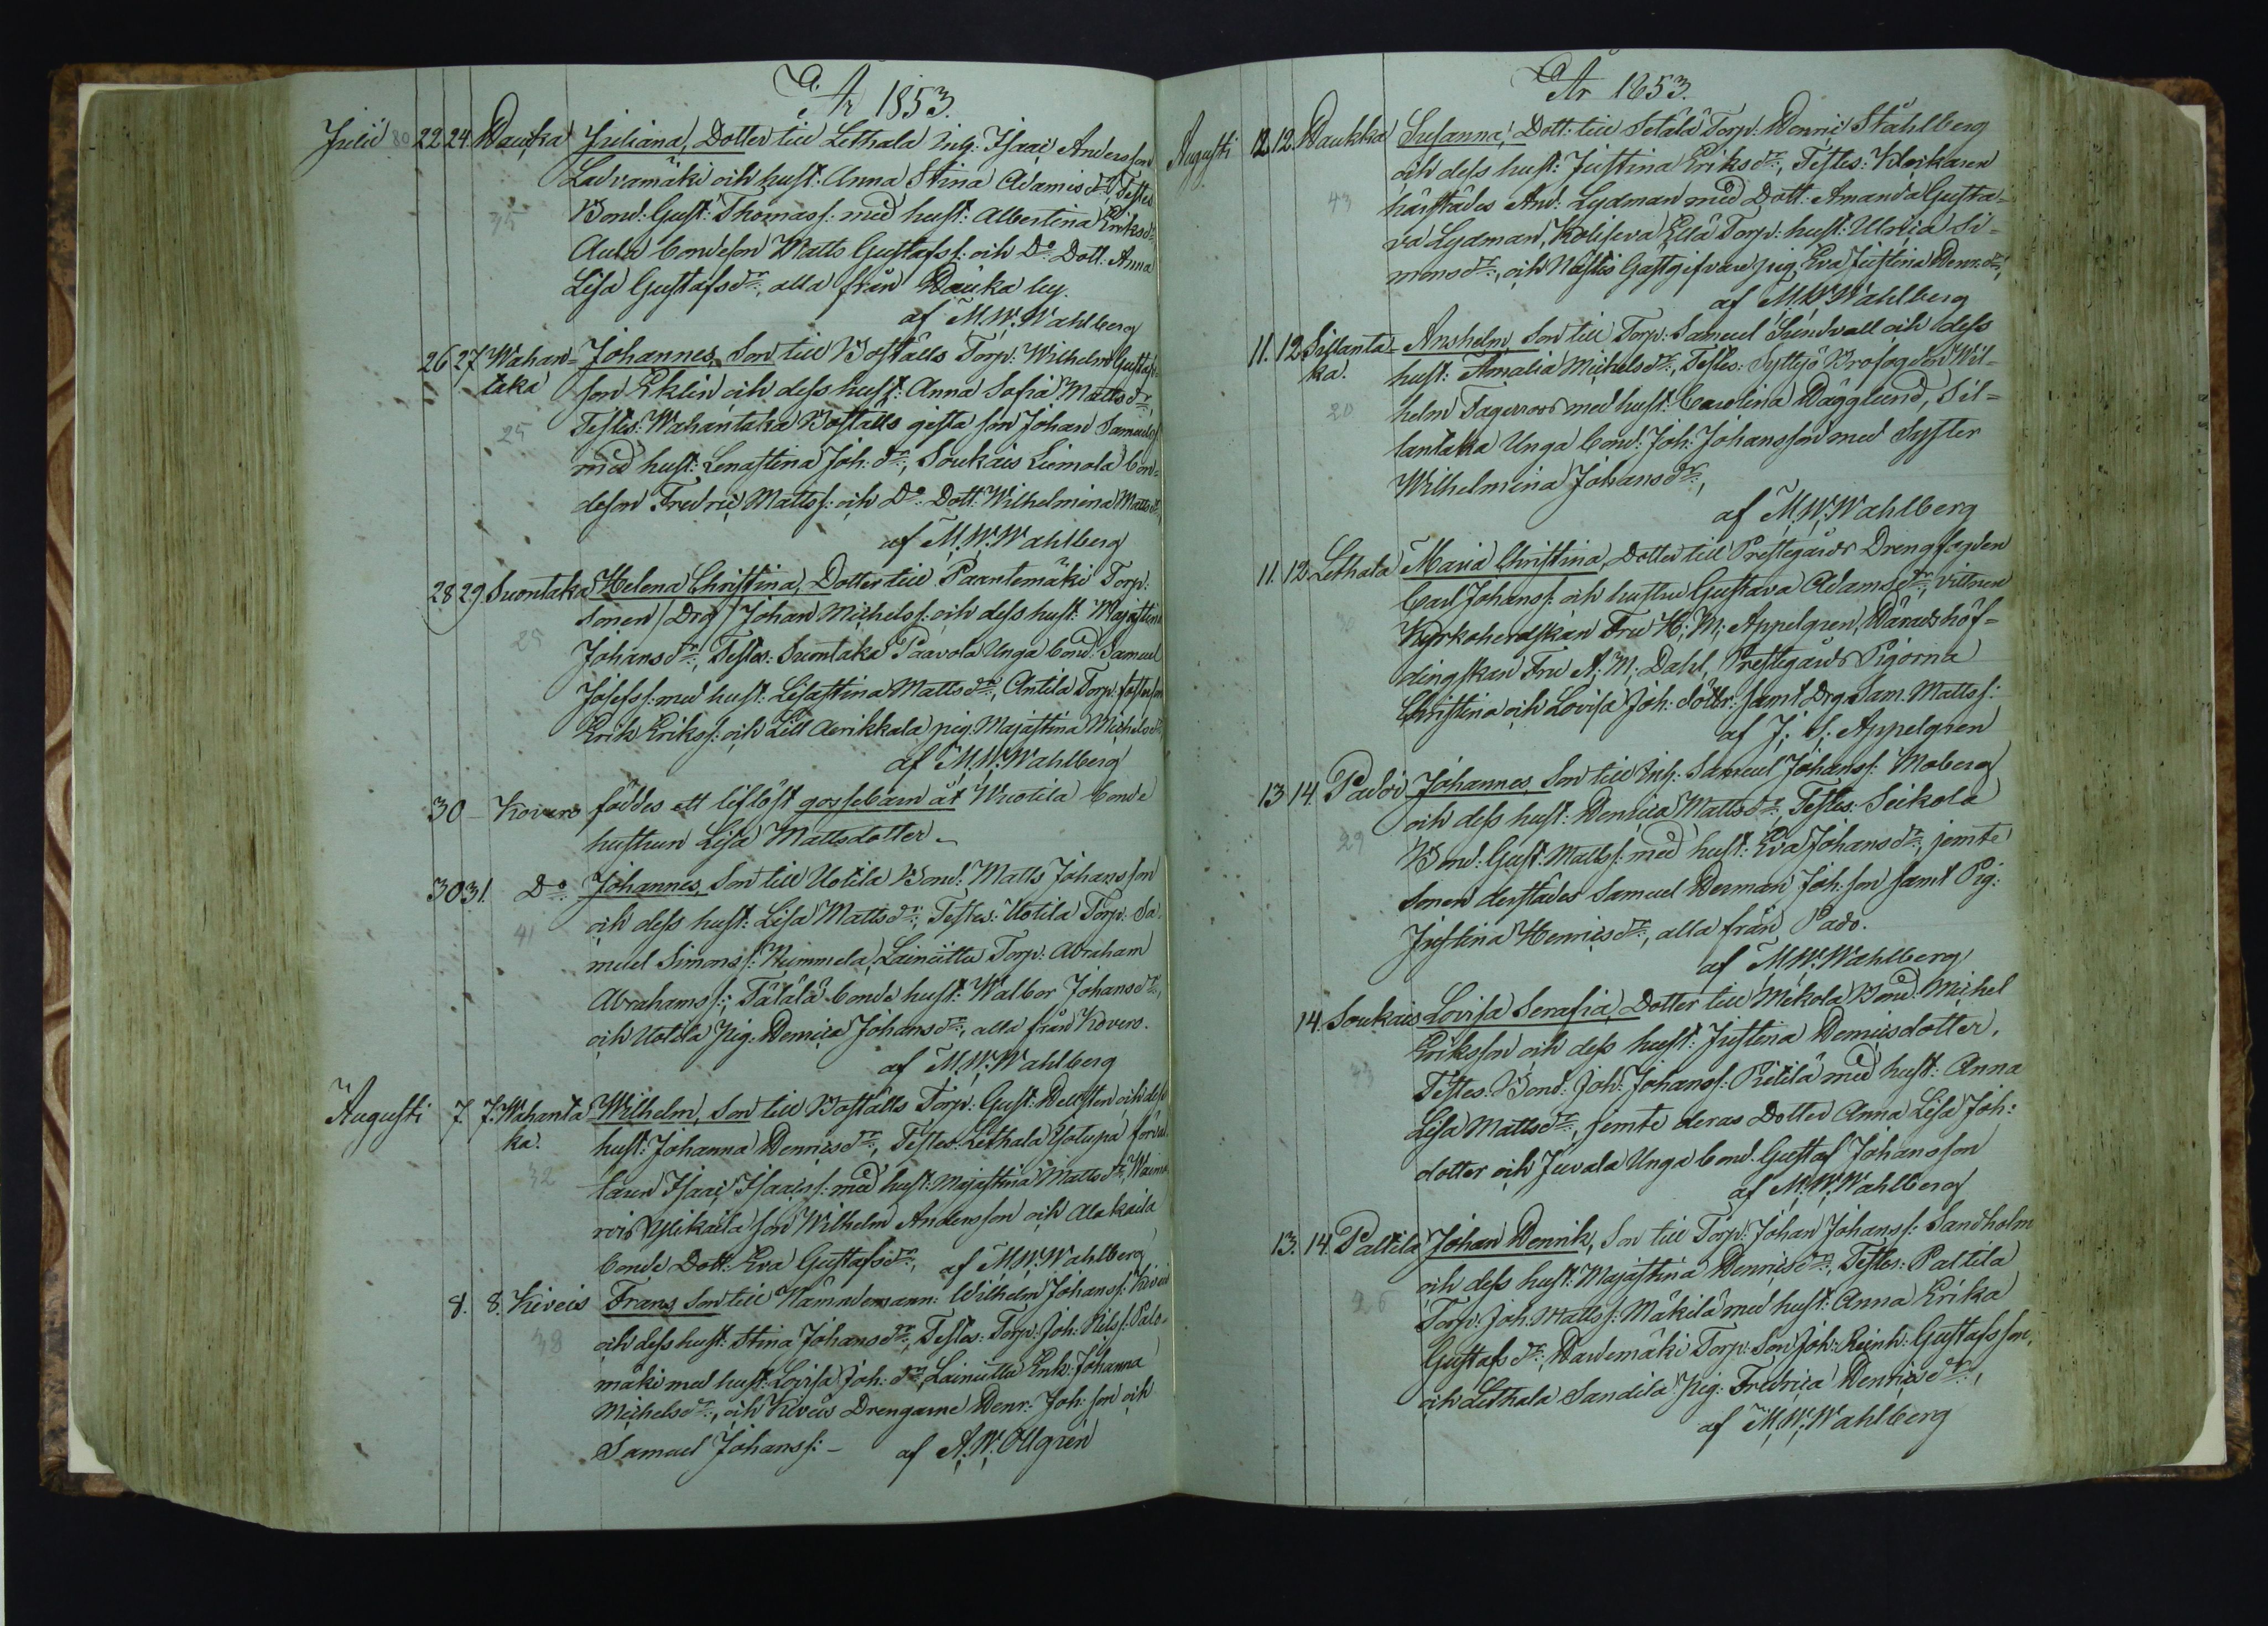 År 1853.
Julii 80 22 24 Hauka Juliana, Dotter till Lethala Inh: Isaac Andersson
Ladvamäki och hust: Anna Stina Adamsdr, Testes
35 Bond: Gust: Thomass: med hust: Albertina Eriksdr
Aula bondeson Matts Gustafss: och Do Dott: Anna
Lisa Gustafsdr, alla från Hauka by.
af M. W. Wahlberg
26 27 Wahan- Johannes, Son till Boställs Torp: Wilhelm Gustafs-
taka son Eklin och dess hust: Anna Sofia Mattsdr,
25 Testes: Wahantaka Boställs gifta son Johan Samuels:
med hust: Lenastina Joh: dr, Soukais Liimola bon-
deson Fredric Mattss: och Do Dott: Wilhelmina Mattsdr,
af M. W. Wahlberg
28 29 Suontaka Helena Christina, Dotter till Paantemäki Torp:
sonen /Drg/ Johan Michelss: och dess hust: Majastina
25 Johansdr, Testes: Suontaka Paavola Unga bond: Samuel
Josefss: med hust: Lisastina Mattsdr, Antila Torp: fosterson
Erik Erikss: och Lill Aerikkala pig: Majastina Michelsdr,
af M. W. Wahlberg
30 - Kovero föddes ett liflöst gossebarn åt Wuotila bonde
hustrun Lisa Mattsdotter.
30 31. Do Johannes, Son till Uotila Bond: Matts Johansson
41 och dess hust: Lisa Mattsdr, Testes: Uotila Torp: Sa-
muel Simonss: Nummela, Lainiitty Torp: Abraham
Abrahamss:, Tätälä bonde hust: Walbor Johansdr,
och Uotila pig: Henrica Johansdr, alla från Kovero.
af M. W. Wahlberg
Augusti 7. 7. Wahanta Wilhelm, Son till Boställs Torp: Gust: Hellsten och dess
ka. hust: Johanna Henricsdr, Testes: Lethala Yolupa förval-
32 taren Isaac Isaacss: med hust: Majastina Mattsdr, Waima-
ro Ylikaila son Wilhelm Andersson och Alakaila
bonde Dott: Eva Gustafsdr, af M. W. Wahlberg
8. 8. Kiveis Frans, Son till Nämndemann: Wilhelm Johanss: Kiveis
38 och dess hust: Stina Johansdr, Testes: Torp: Joh: Nilss: Palo-
mäki med hust: Lovisa Joh: dr, Lainiitty Enk: Johanna
Michelsdr, och Kiveis Drengarne Henr: Joh: son och
Samuel Johanss: - af A. W. Ollgren
År 1853.
Augusti 12. 12. Haukka Susanna, Dott: till Setälä Torp: Henric Ståhlberg
och dess hust: Justina Eriksdr, Testes: Klockaren
43 härstädes And: Lydman med Dott: Amanda Gusta-
va Lydman, Koliseva Ellä Torp: hust: Ulrica Si-
monsdr, och Nästis Gästgifvare pig: Eva Justina Henr: dr,
af M. W. Wahlberg
11. 12 Sillanta- Anshelm, Son till Torp: Samuel Sundvall och dess
ka. hust: Amalia Michelsdr, Testes: Brofogden Wil-
20 helm Fagerroos med hust: Carolina Hägglund, Sil-
lantaka Unga bond: Joh: Johansson med Syster
Wilhelmina Johansdr,
af M. W. Wahlberg
11. 12 Lethala Maria Christina, Dotter till Prestegårds Drengfogden
Carl Johanss: och hustru Gustava Adamsdr, vittnen
Kyrkoherdskan Fru H: M: Appelgren, Häradshöf-
dingskan Fru A: M: Dahl, Prestegårds Pigorna
Christina och Lovisa Joh: döttr: samt Drg: Sam: Mattss:
af J: S: Appelgren
13 14. Pado Johannes, Son till Inh: Samuel Johanss: Moberg
och dess hust: Henrica Mattsdr, Testes: Seikola
29 Bond: Gust: Mattss: med hust: Eva Johansdr, jemte
sonen derstädes Samuel Herman Joh: son samt Pig:
Justina Henricsdr, alla från Pado.
af M. W. Wahlberg
14. Soukais Lovisa Serafia, Dotter till Mikola Bond: Michel
Eriksson och dess hust: Justina Henricsdotter,
43 Testes: Bond: Joh: Johanss: Pietilä med hust: Anna
Lisa Mattsdr, jemte deras Dotter Anna Lisa Joh:
dotter och Juvala Unga bond: Gustaf Johansson
af M. W. Wahlberg
13. 14. Paltila Johan Henrik, Son till Torp: Johan Johanss: Sandholm
och dess hust: Majastina Henricsdr, Testes: Paltila
26 Torp: Joh: Mattss: Mäkilä med hust: Anna Erika
Gustafsdr, Harjumäki Torp: Son Joh: Reinh: Gustafsson,
och Lethala Sandila pig: Fredrica Henricsdr,
af M. W. Wahlberg